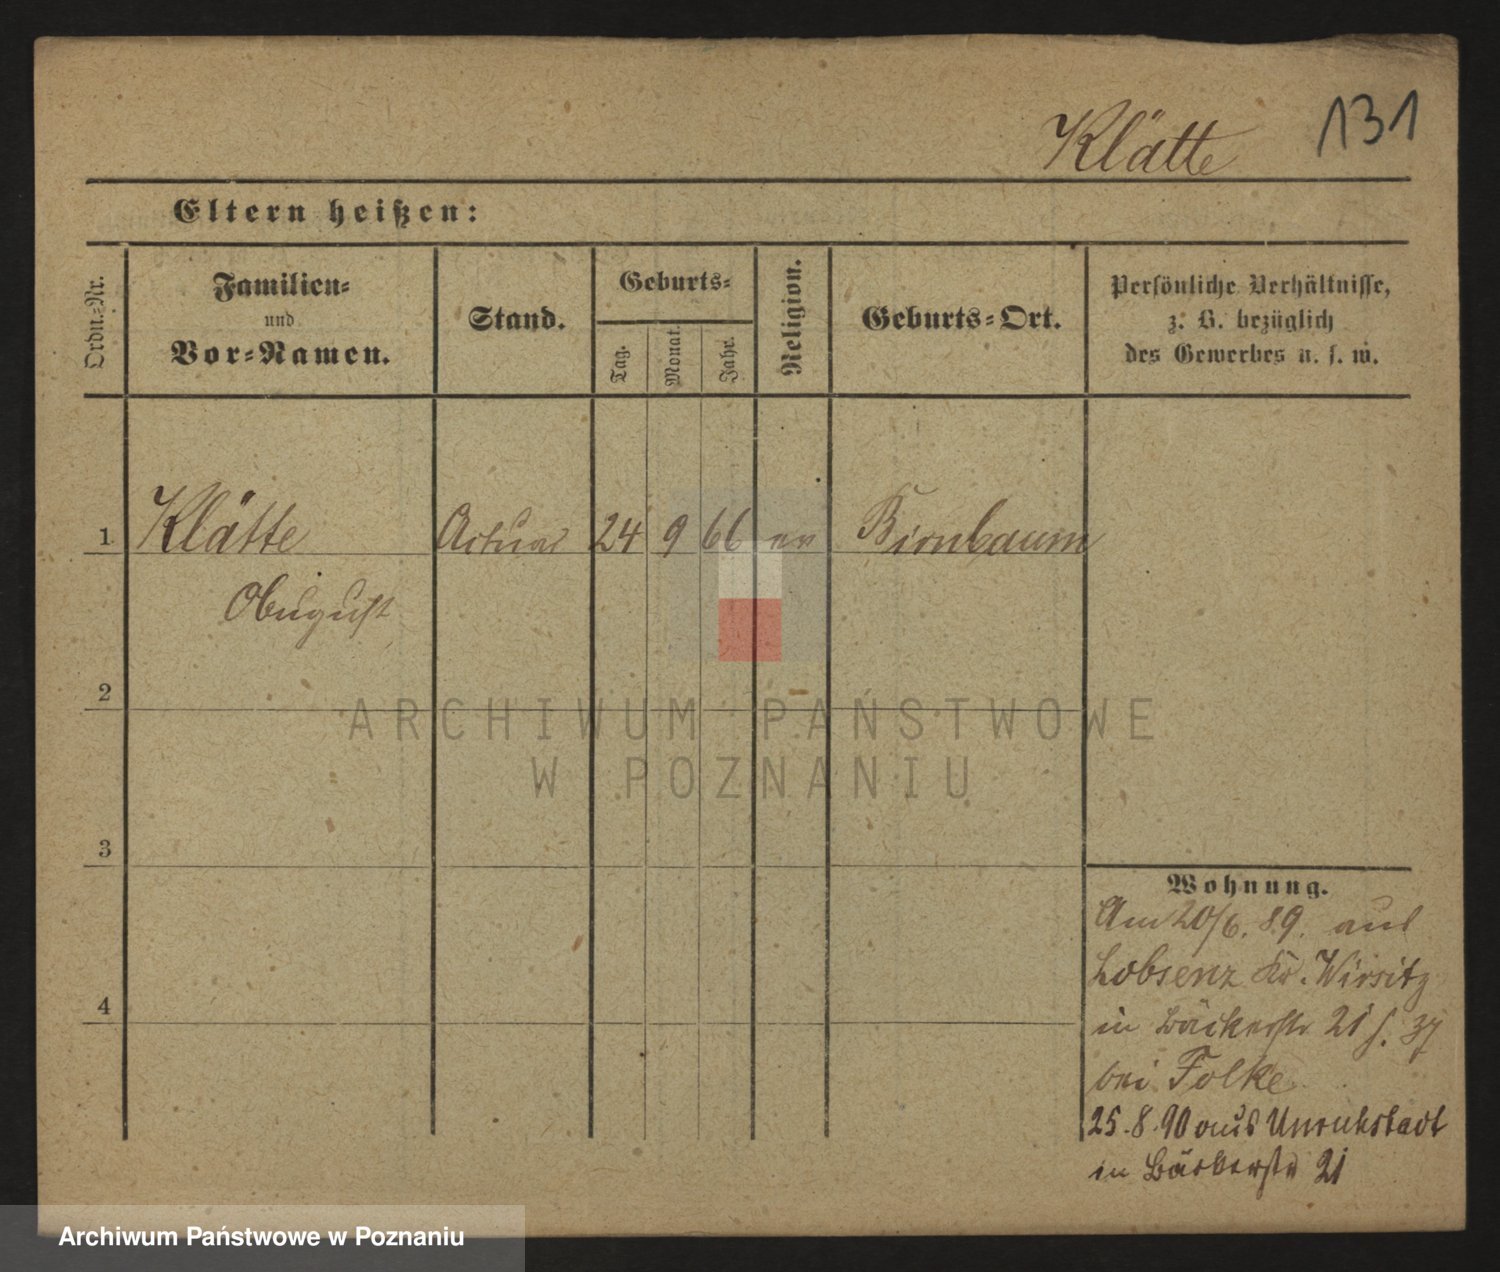 Klätte 131
Eltern heißen:
Ordn.-Nr.
Familien-
und
Vor-Namen.
Stand.
Geburts-
Tag.
Monat.
Jahr.
Religion.
Geburts-Ort.
Persönliche Verhältnisse,
z. B. bezüglich
des Gewerbes u. s. w.
1 Klätte Actuar 24 9 66 ev Birnbaum
August
2
3
4
Wohnung.
Am 20/6. 89. aus
Lobsenz Kr. Wirsitz
in Bäckerstr 21
bei Folke
25.8.90 aus Unruhstadt
in Bäckerstr 21
ARCHIWUM PAŃSTWOWE
W POZNANIU
Archiwum Państwowe w Poznaniu